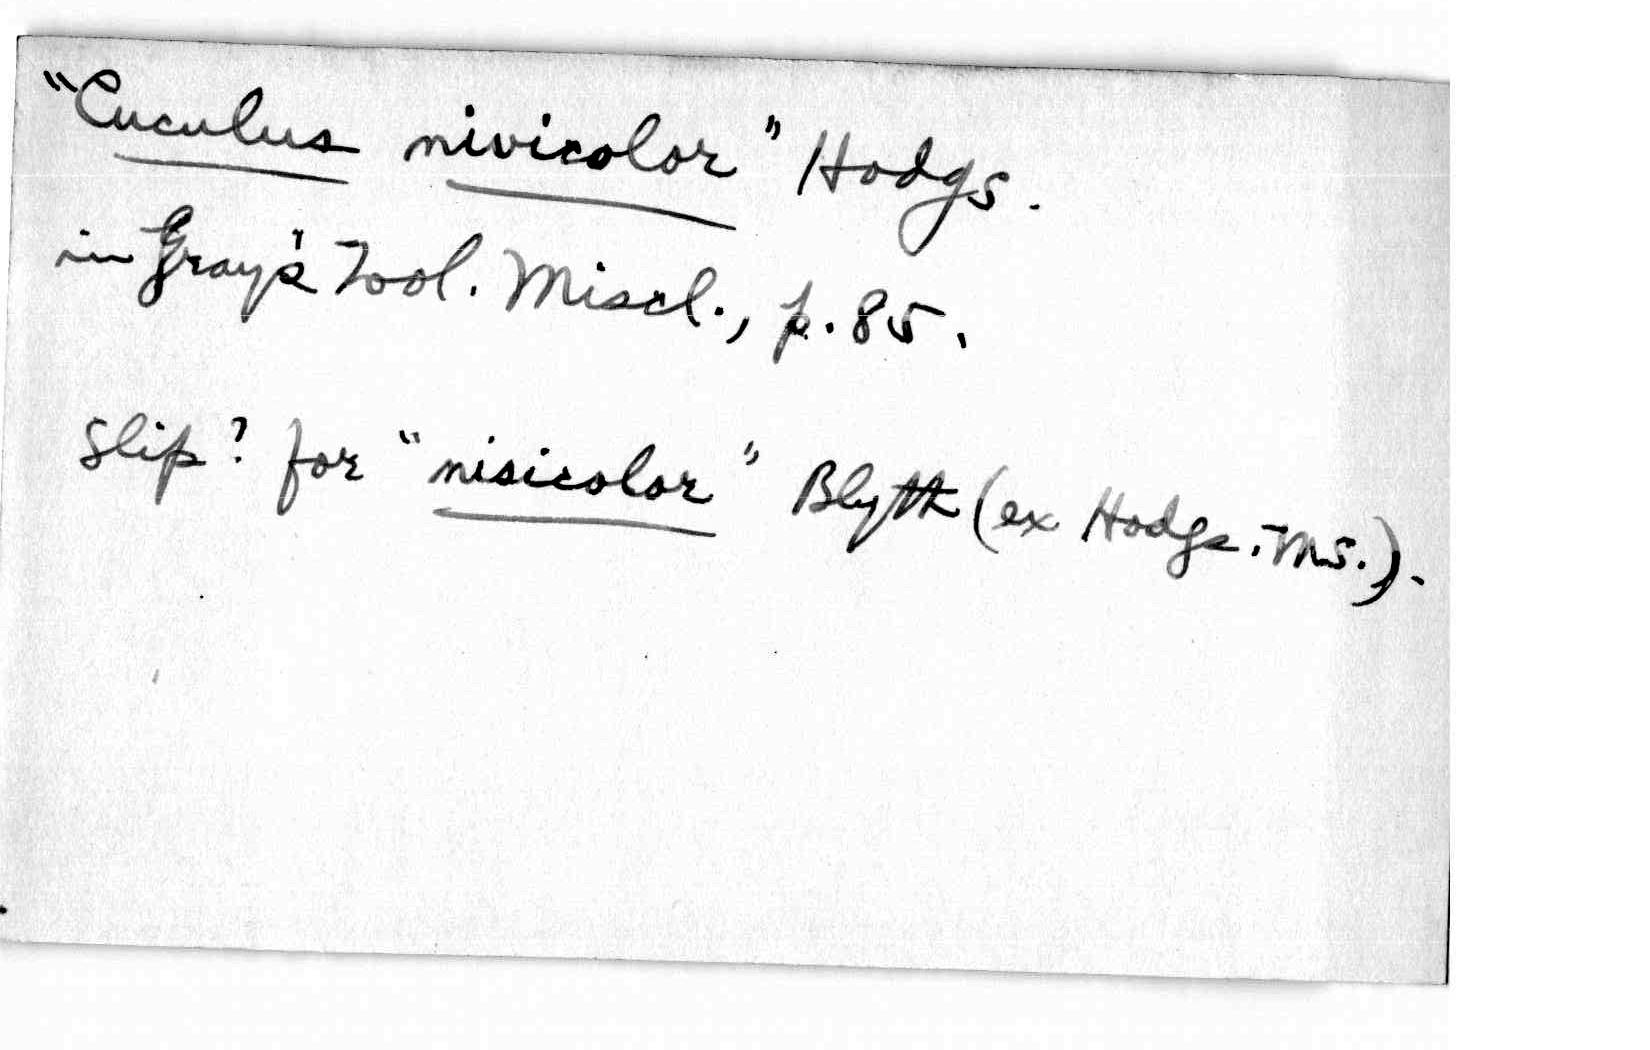 "Cuculus nivicolor" Hodgs.
in Gray's Zool. Miscl., p. 85.
Slip? for "nisicolor" Blyth (ex Hodgs. MS.).